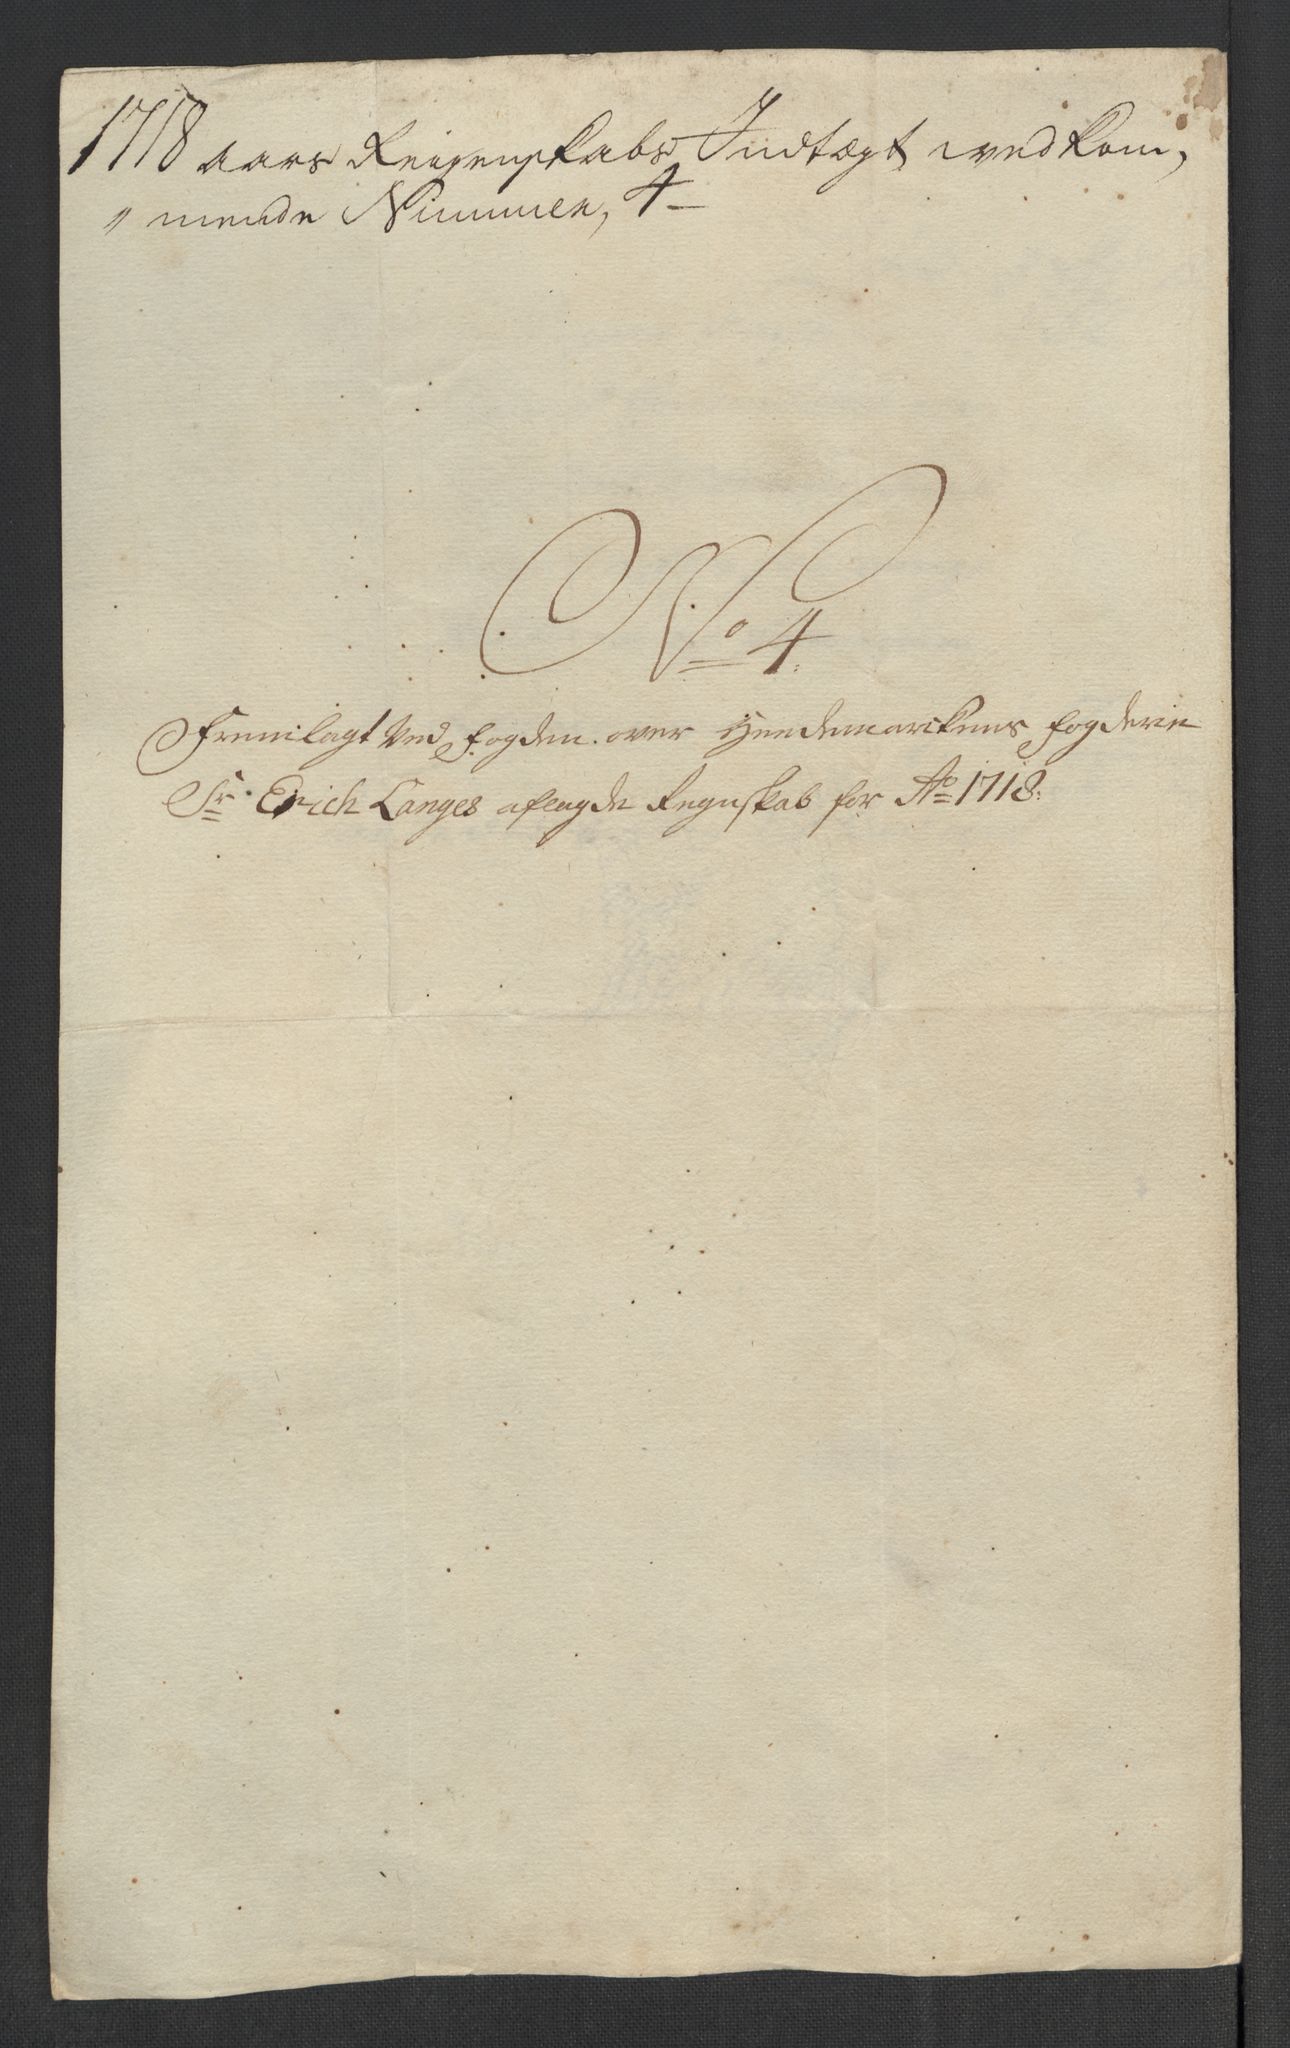 1718 aars Reigenskabs Indtægt vedkom,
„ mende Nummer, 4
No 4.
Fremlagt Ved fogden over Heedemarckens fogderie
Sr. Erich Langes aflagde Regnskab for Ao 1718.